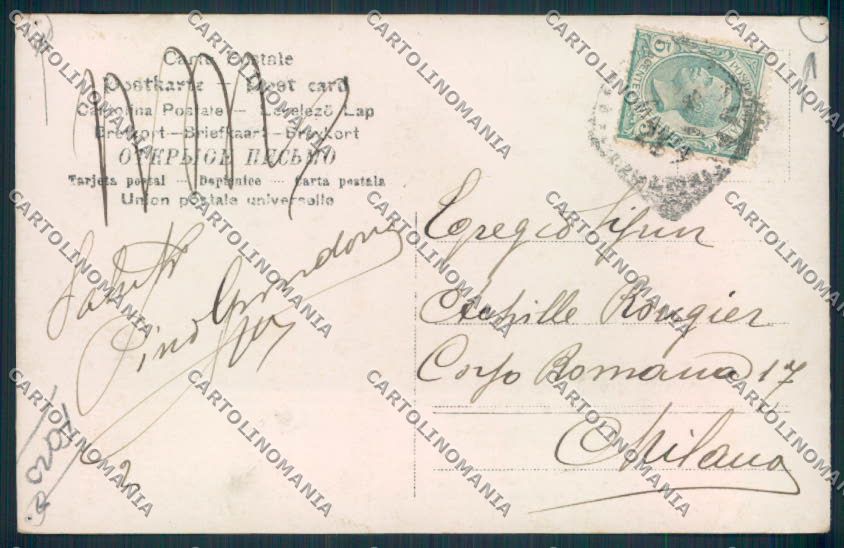 Carte Postale
Postkarte — Post card
Cartolina Postale — Levelező Lap
Brefkort — Briefkaart — Brevkort
ОТКРЫСЬ ПИСЬМО
Tarjeta postal — Dopisnice — Carta postala
Union postale universelle
Saluti
Pino
Egregio Signor
Achille Rougier
Corso Romana 17
Milano
CARTOLINOMANIA